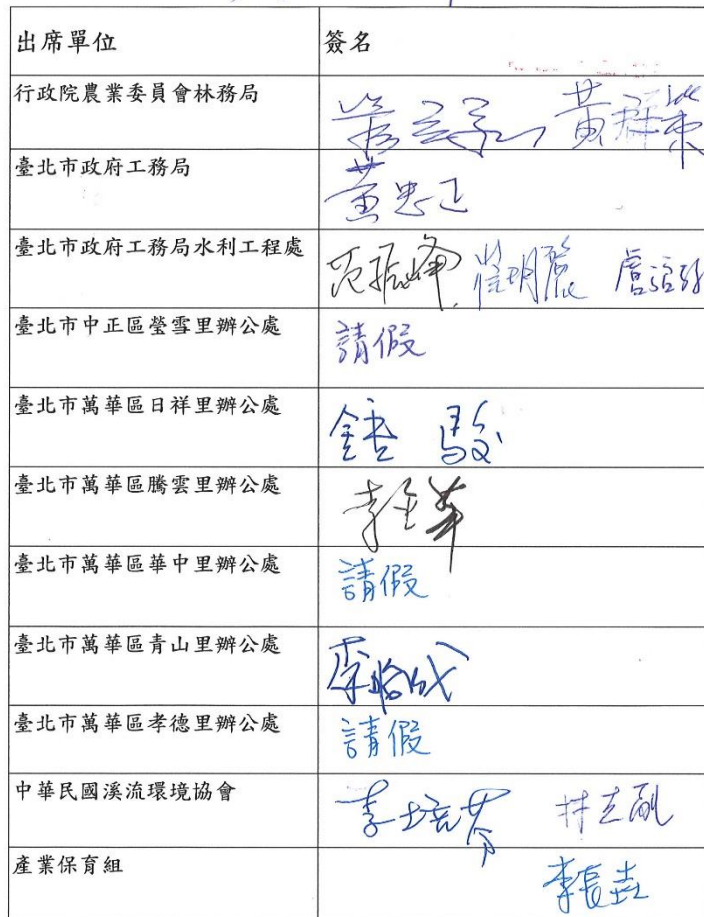 出席單位 簽名
行政院農業委員會林務局
臺北市政府工務局 黃忠正
臺北市政府工務局水利工程處 范振峰
臺北市中正區螢雪里辦公處 請假
臺北市萬華區日祥里辦公處 駿
臺北市萬華區騰雲里辦公處 李
臺北市萬華區華中里辦公處 請假
臺北市萬華區青山里辦公處 李
臺北市萬華區孝德里辦公處 請假
中華民國溪流環境協會 李培芬
產業保育組 李長